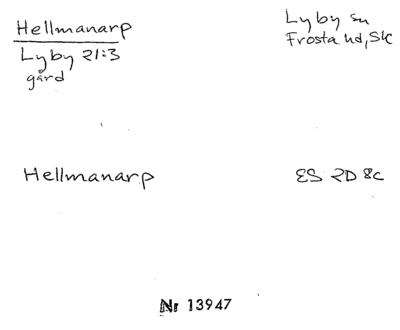 Hellmanarp
Lyby 21:3
gård
Lyby sn
Frosta hd, Sk
Hellmanarp
ES 2D 8c
Nr 13947